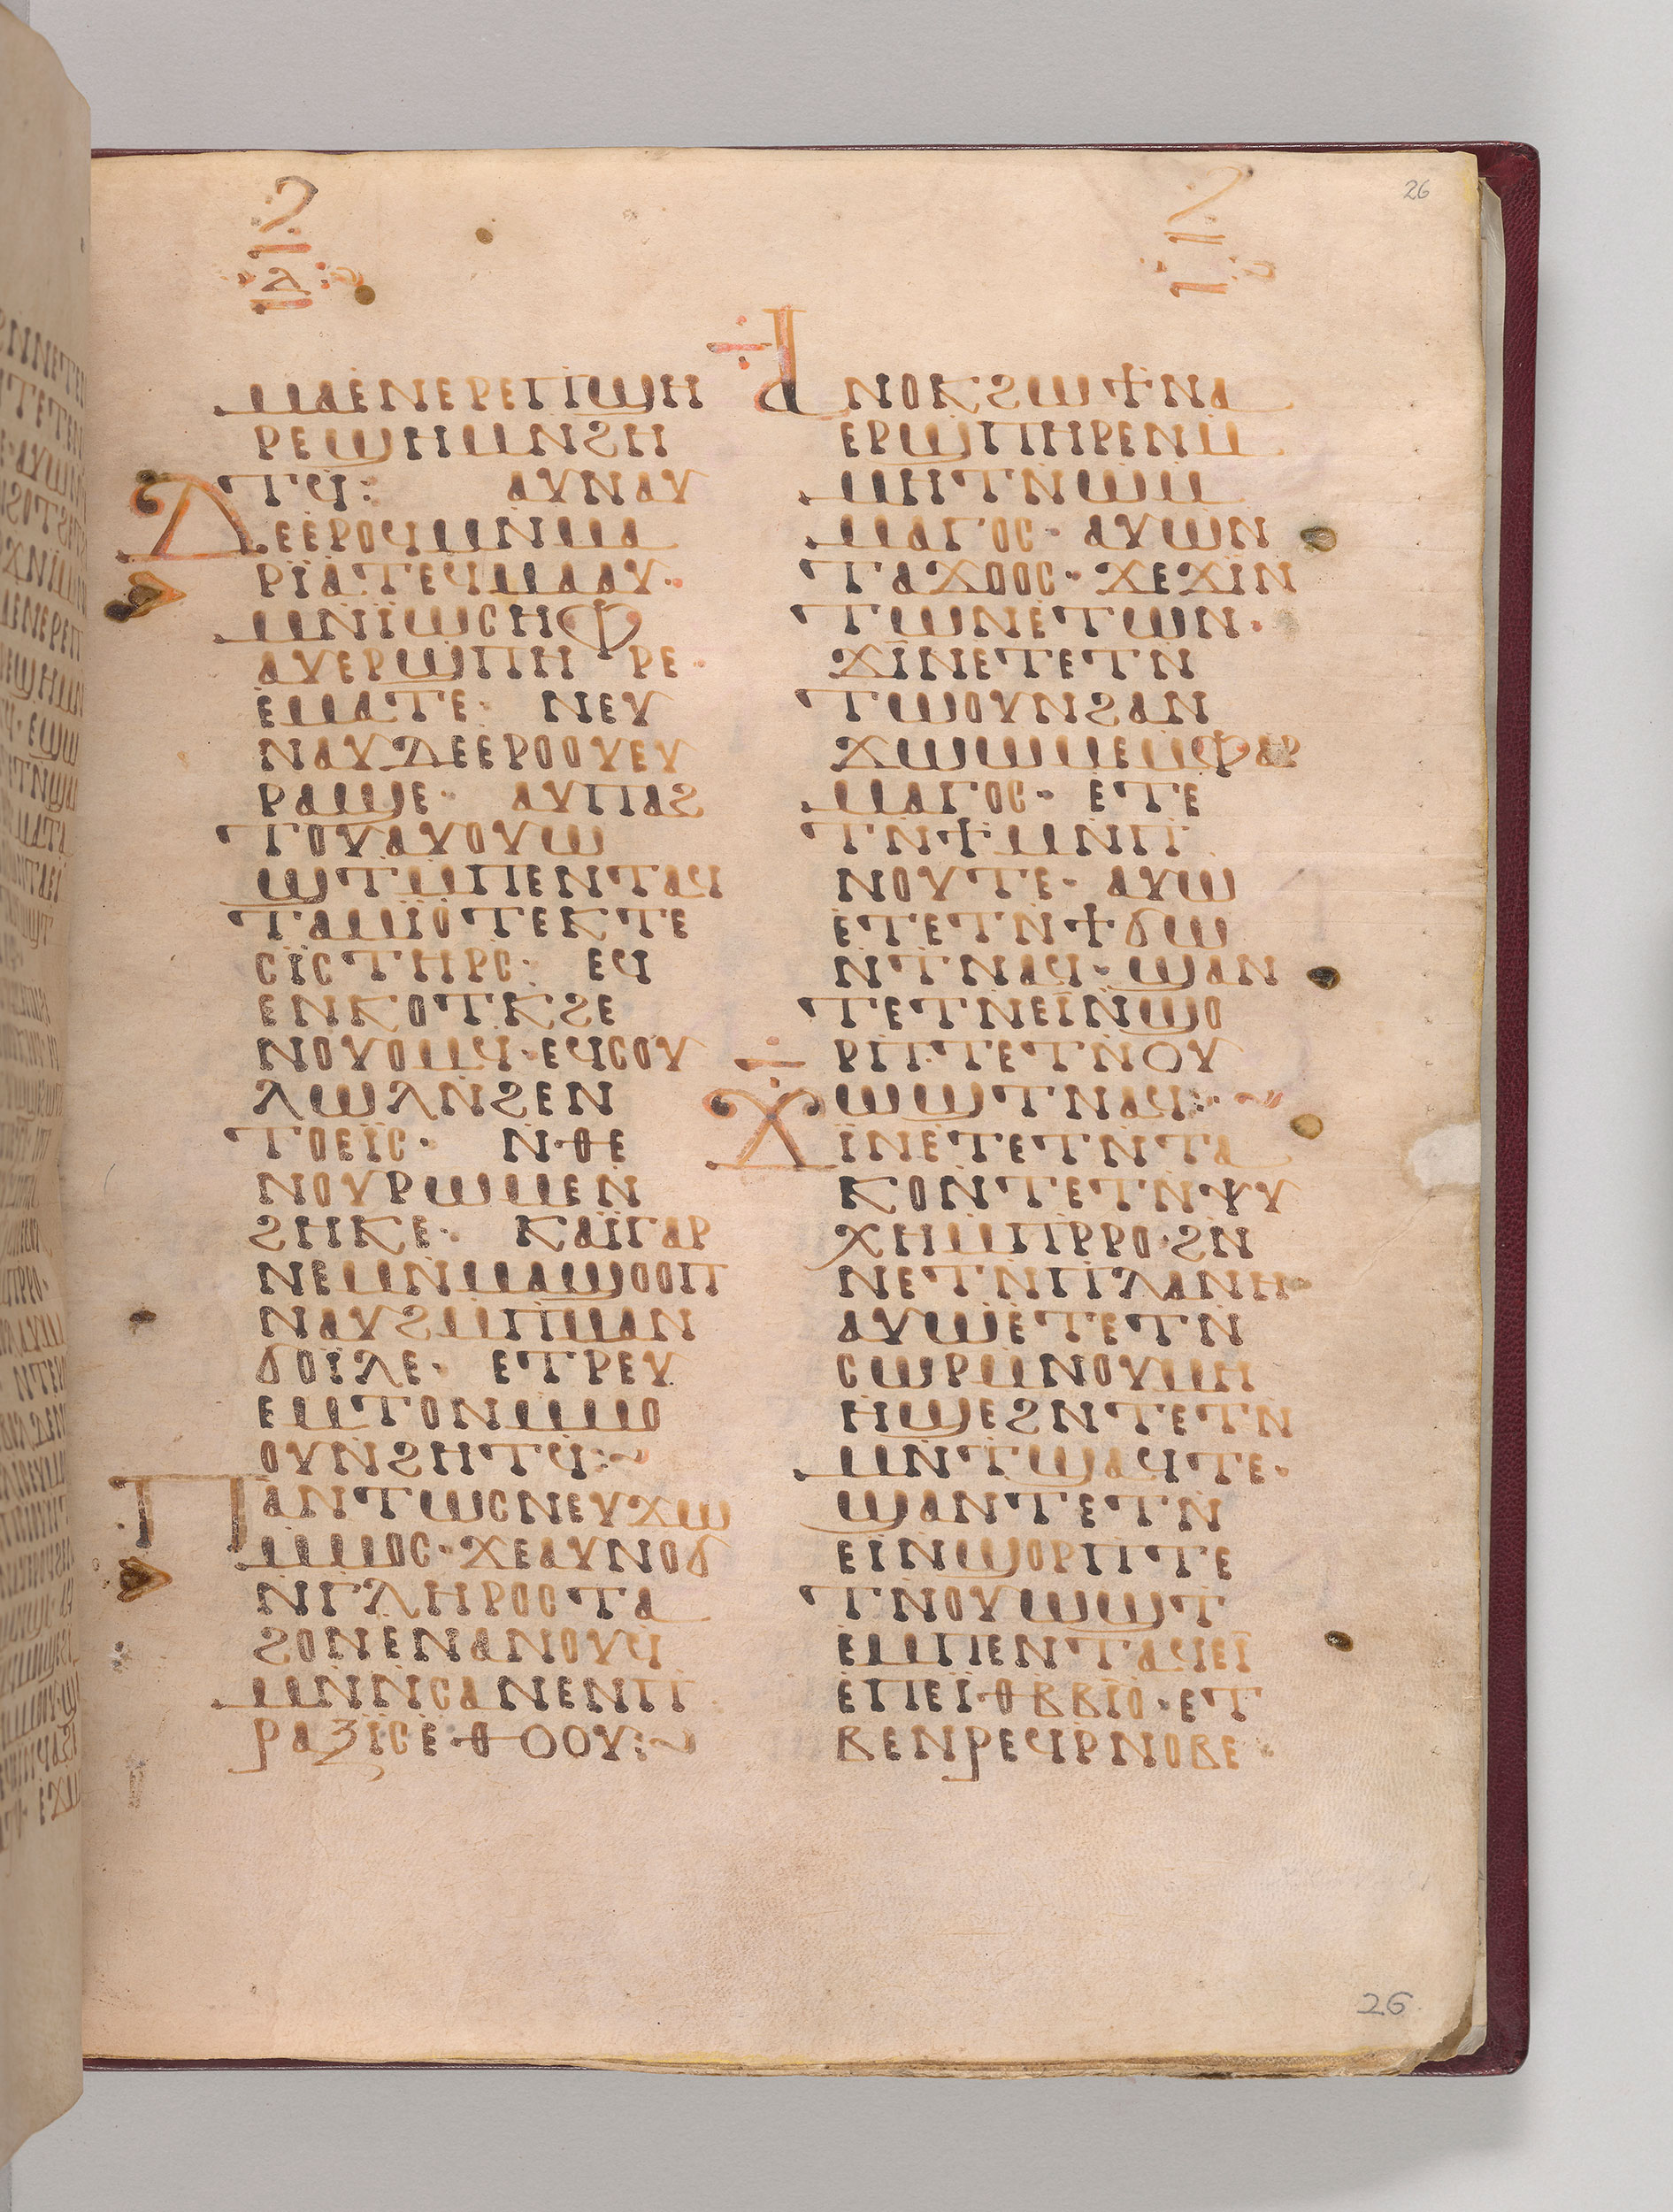 26
ⲙⲁⲉⲛⲉⲣⲉⲡϣⲏ
ⲣⲉϣⲏⲙⲛϩⲏ
ⲧϥ: ⲁⲩⲛⲁⲩ
ⲇⲉⲉⲣⲟϥⲙⲛⲙⲁ
ⲣⲓ̈ⲁⲧⲉϥⲙⲁⲁⲩ·
ⲙⲛⲓ̈ⲱⲥⲏⲫ
ⲁⲩⲉⲣϣⲡⲏ ⲣⲉ·
ⲉⲙⲁⲧⲉ· ⲛⲉⲩ
ⲛⲁⲩⲇⲉⲉⲣⲟⲟⲩⲉⲩ
ⲣⲁϣⲉ· ⲁⲩⲡⲁϩ
ⲧⲟⲩⲁⲩⲟⲩⲱ
ϣⲧⲙⲡⲉⲛⲧⲁϥ
ⲧⲁⲙⲓ̈ⲟⲧⲉⲕⲧⲉ
ⲥⲓ̈ⲥⲧⲏⲣⲥ· ⲉϥ
ⲉⲛⲕⲟⲧⲕϩⲉ
ⲛⲟⲩⲟⲙϥ·ⲉϥⲥⲟⲩ
ⲗⲱⲗⲛϩⲉⲛ
ⲧⲟⲉⲓ̈ⲥ· ⲛ·ⲑⲉ
ⲛⲟⲩⲣⲱⲙⲉⲛ
ϩⲏⲕⲉ· ⲕⲁⲓ̈ⲅⲁⲣ
ⲛⲉⲙⲛⲙⲁϣⲟⲟⲡ
ⲛⲁⲩϩⲙⲡⲙⲁⲛ
ϭⲟⲓ̈ⲗⲉ· ⲉⲧⲣⲉⲩ
ⲉⲙⲧⲟⲛⲙⲙⲟ
ⲟⲩⲛϩⲏⲧϥ:~
ⲡⲁⲛⲧⲱⲥⲛⲉⲩϫⲱ
ⲙⲙⲟⲥ·ϫⲉⲁⲩⲛⲟϭ
ⲛⲅⲗⲏⲣⲟⲥⲧⲁ
ϩⲟⲛⲉⲛⲁⲛⲟⲩϥ
ⲙⲛⲛⲥⲁⲛⲉⲛⲡ
ⲣⲁⲝⲓ̈ⲥⲉ·ⲑⲟⲟⲩ:~
ⲁⲛⲟⲕϩⲱϯⲛⲁ
ⲉⲣϣⲡⲏⲣⲉⲛⲙ
ⲙⲏⲧⲛⲱⲙ
ⲙⲁⲅⲟⲥ· ⲁⲩⲱⲛ
ⲧⲁϫⲟⲟⲥ·ϫⲉϫⲓⲛ
ⲧⲱⲛⲉⲧⲱⲛ·
ϫⲓⲛⲉⲧⲉⲧⲛ
ⲧⲱⲟⲩⲛϩⲁⲛ
ϫⲱⲱⲙⲉⲙⲫⲁⲣ
ⲙⲁⲅⲟⲥ· ⲉⲧⲉ
ⲧⲛϯⲙⲛⲡ
ⲛⲟⲩⲧⲉ· ⲁⲩⲱ
ⲉⲧⲉⲧⲛϯϭⲱ
ⲛⲧⲛⲁϥ·ϣⲁⲛ
ⲧⲉⲧⲛⲉⲓⲛϣⲟ
ⲣⲡ·ⲧⲉⲧⲛⲟⲩ
ⲱϣⲧⲛⲁϥ:·~
ϫⲓⲛⲉⲧⲉⲧⲛⲧⲁ
ⲕⲟⲛⲧⲉⲧⲛⲯⲩ
ⲭⲏⲙⲡⲣⲣⲟ·ϩⲛ
ⲛⲉⲧⲛⲡⲗⲁⲛⲏ
ⲁⲩⲱⲉⲧⲉⲧⲛ
ⲥⲱⲣⲙⲛⲟⲩⲙⲏ
ⲏϣⲉϩⲛⲧⲉⲧⲛ
ⲙⲛⲧϣⲁϥⲧⲉ·
ϣⲁⲛⲧⲉⲧⲛ
ⲉⲓⲛϣⲟⲣⲡⲧⲉ
ⲧⲛⲟⲩⲱϣⲧ
ⲉⲙⲡⲉⲛⲧⲁϥⲉⲓ
ⲉⲡⲉⲓ̈·ⲑⲃⲃⲓ̈ⲟ·ⲉⲧ
ⲃⲉⲛⲣⲉϥⲣⲛⲟⲃⲉ
26